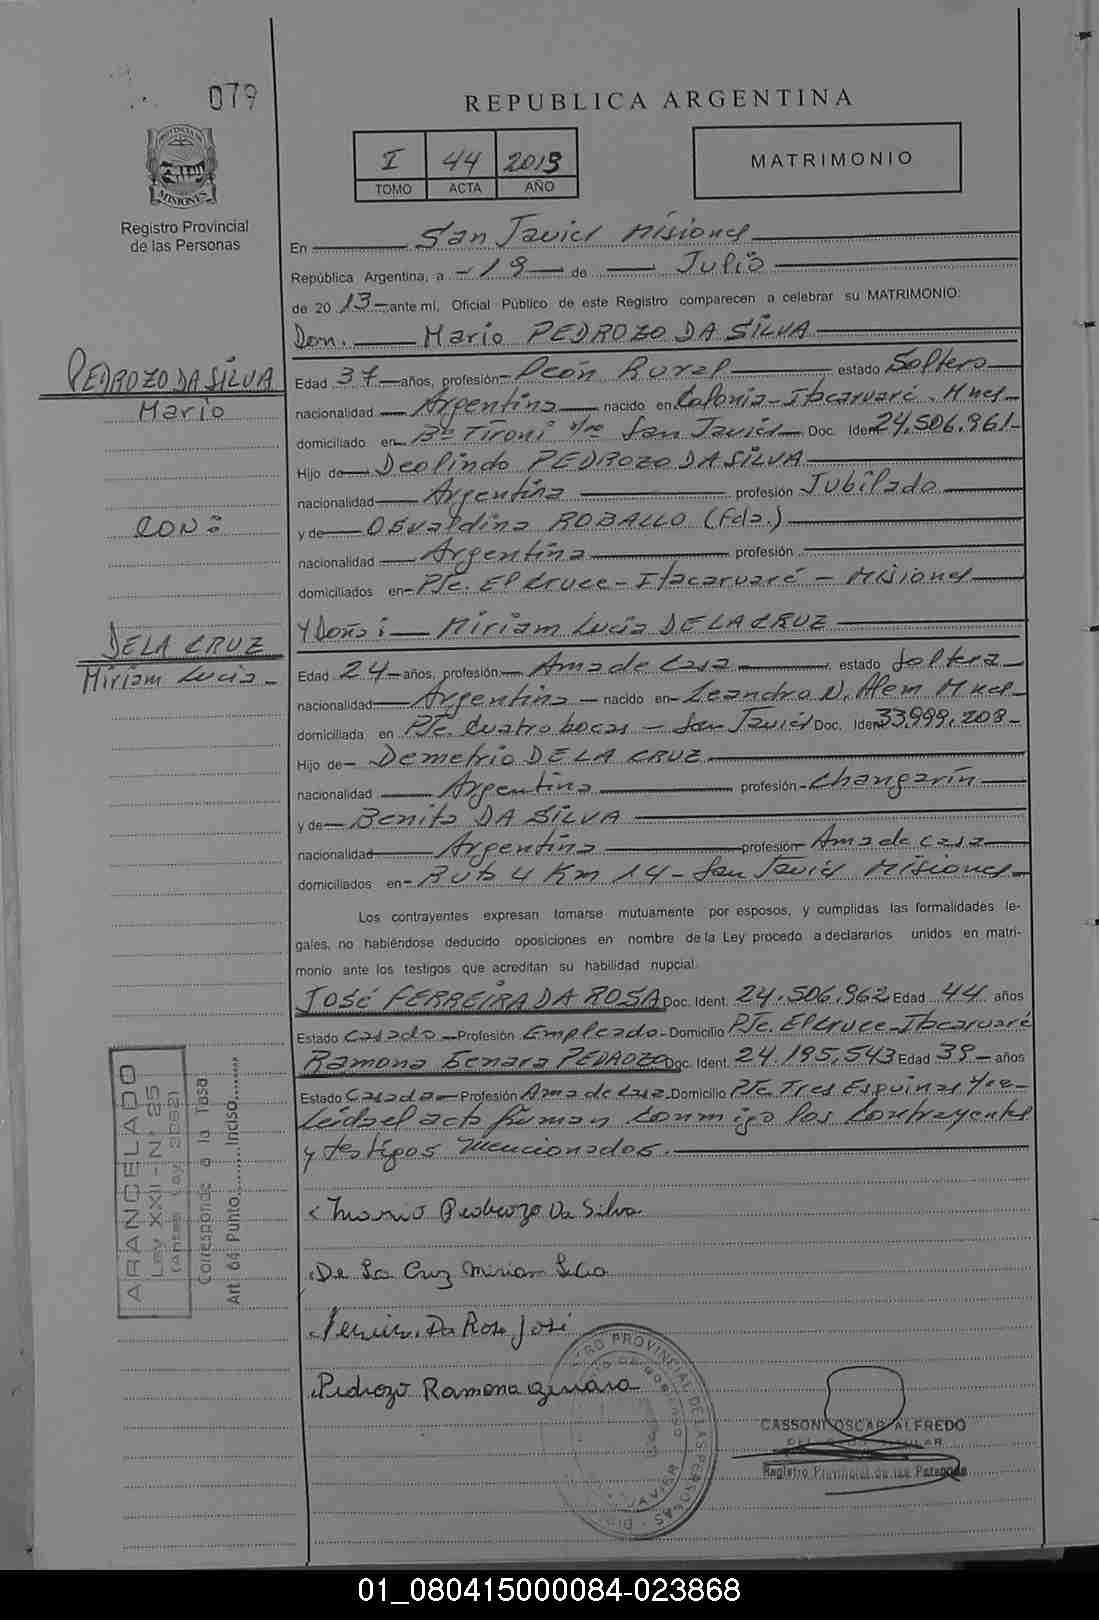 079
PROVINCIA DE
MISIONES
Registro Provincial
de las Personas
REPUBLICA ARGENTINA
I 44 2013
TOMO ACTA AÑO
MATRIMONIO
En San Javier Misiones
República Argentina, a 19 de Julio
de 2013 ante mí, Oficial Público de este Registro comparecen a celebrar su MATRIMONIO:
Don. Mario PEDROZO DA SILVA
PEDROZO DA SILVA
Mario
CON:
DE LA CRUZ
Miriam Lucia
Edad 37 años, profesión Peón Rural estado Soltero
nacionalidad Argentina nacido en Colonia Itacaruaré. Mnes
domiciliado en Bº Tironi s/nº San Javier Doc. Ident. 24.506.961
Hijo de Deolindo PEDROZO DA SILVA
nacionalidad Argentina profesión Jubilado
y de Osvaldina ROBALLO (Fda.)
nacionalidad Argentina profesión
domiciliados en Pje. El Cruce - Itacaruaré - Misiones
Y Doña: Miriam Lucia DE LA CRUZ
Edad 24 años, profesión Ama de Casa estado Soltera
nacionalidad Argentina nacido en Leandro N. Alem Mnes
domiciliada en Pje. Cuatro bocas - San Javier Doc. Ident. 33.999.208
Hijo de Demetrio DE LA CRUZ
nacionalidad Argentina profesión Changarín
y de Benita DA SILVA
nacionalidad Argentina profesión Ama de casa
domiciliados en Ruta 4 Km 14 - San Javier Misiones
Los contrayentes expresan tomarse mutuamente por esposos, y cumplidas las formalidades le-
gales, no habiéndose deducido oposiciones en nombre de la Ley procedo a declararlos unidos en matri-
monio ante los testigos que acreditan su habilidad nupcial.
JOSÉ FERREIRA DA ROSA Doc. Ident. 24.506.962 Edad 44 años
Estado Casado Profesión Empleado Domicilio Pje. El Cruce - Itacaruaré
Ramona Genara PEDROZO Doc. Ident. 24.195.543 Edad 39 años
Estado Casada Profesión Ama de Casa Domicilio Pje Tres Esquinas
Leída el acta firman conmigo los contrayentes
y testigos mencionados.
ARANCELADO
Ley XXII - Nº 25
(Antes Ley 2052)
Corresponde a la Tasa
Art. 64 Punto ........ Inciso ........
Mario Pedrozo Da Silva
De La Cruz Miriam
Ferreira Da Rosa José
Pedrozo Ramona Genara
REGISTRO PROVINCIAL DE LAS PERSONAS
JAVIER
CASSONI OSCAR ALFREDO
Registro Provincial de las Personas
01_080415000084-023868